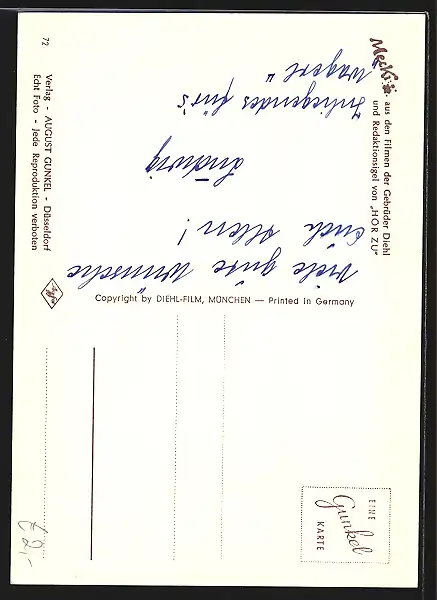 Mecki
aus den Filmen der Gebrüder Diehl
und Redaktionsigel von „HÖR ZU“
Viele gute Wünsche
Euch Allen!
Ludwig
Inliegendes für's
"Wagerl"
Copyright by DIEHL-FILM, MÜNCHEN — Printed in Germany
72
Verlag - AUGUST GUNKEL - Düsseldorf
Echt Foto - Jede Reproduktion verboten
Agfa
EINE
Gunkel
KARTE
£ 2,-